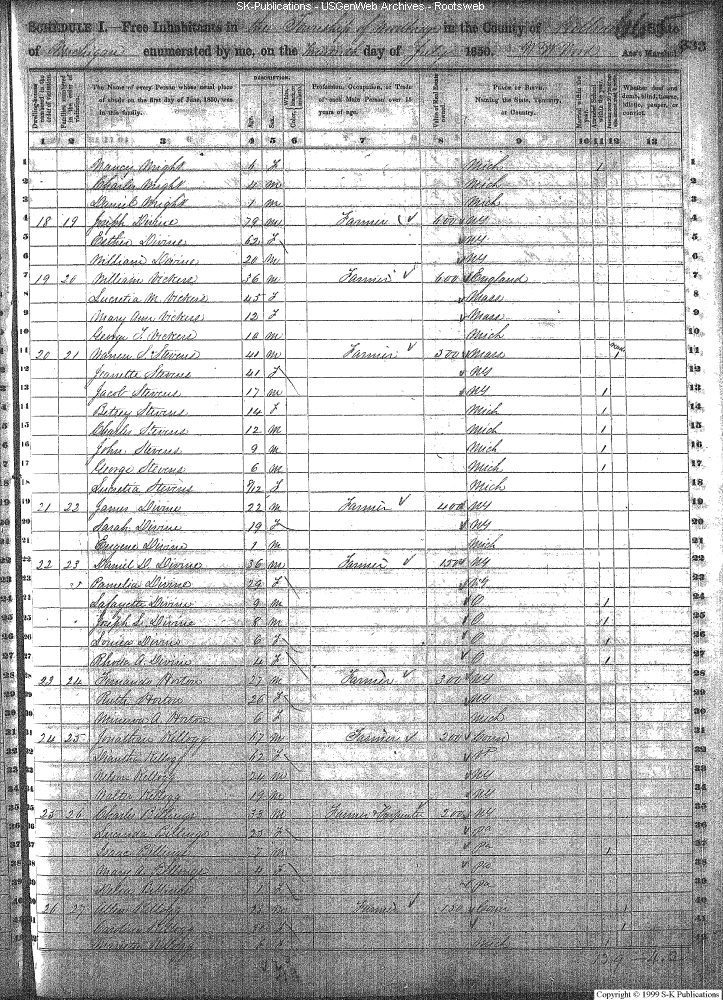 SK-Publications - USGenWeb Archives - Rootsweb
SCHEDULE I. Free Inhabitants in the Township of in the County of State
of Michigan enumerated by me, on the day of July 1850. Ass't Marshal
333
DESCRIPTION.
The Name of every Person whose usual place of abode on the first day of June, 1850, was in this family.
Age.
Sex.
Profession, Occupation, or Trade of each Male Person over 15 years of age.
Value of Real Estate owned.
PLACE OF BIRTH. Naming the State, Territory, or Country.
Whether deaf and dumb, blind, insane, idiotic, pauper, or convict.
1 2 3 4 5 6 7 8 9 10 11 12 13
1 Nancy Wright 6 F Mich 1
2 Charles Wright 4 M Mich
3 Daniel Wright 1 M Mich
4 18 19 Joseph Divine 79 M Farmer 600 NY
5 Esther Divine 62 F NY
6 William Divine 20 M NY
7 19 20 William Vickers 36 M Farmer 600 England
8 Lucretia M. Vickers 45 F Mass
9 Mary Ann Vickers 12 F Mass
10 George T. Vickers 10 M Mich
11 20 21 Warren S. Stevens 41 M Farmer 500 Mass 1
12 Jeanette Stevens 41 F NY
13 Jacob Stevens 17 M NY 1
14 Betsey Stevens 14 F Mich 1
15 Charles Stevens 12 M Mich 1
16 John Stevens 9 M Mich 1
17 George Stevens 6 M Mich 1
18 Lucretia Stevens 8/12 F Mich
19 21 22 James Divine 22 M Farmer 400 NY
20 Sarah Divine 19 F NY
21 Eugene Divine 1 M Mich
22 22 23 Daniel D. Divine 36 M Farmer NY
23 Pamelia Divine 29 F NY
24 Lafayette Divine 9 M O 1
25 Joseph L. Divine 8 M O 1
26 Louisa Divine 6 F O 1
27 Rhoda A. Divine 4 F O 1
28 23 24 Fernando Horton 27 M Farmer 300 NY
29 Ruth Horton 26 F NY
30 Minerva A. Horton 6 F Mich
31 24 25 Jonathan Kellogg 67 M Farmer 200 Conn
32 Kellogg 62 F
33 Nelson Kellogg 24 M NY
34 Walter Kellogg 19 M NY
35 25 26 Charles Billings 33 M Farmer & Carpenter 200 NY
36 Lucinda Billings 25 F Pa
37 Isaac Billings 7 M Pa 1
38 Mary A. Billings 4 F Pa
39 Billings 1 F Pa
40 26 27 Allen Kellogg M Farmer 150 Conn
41 Caroline Kellogg F
42 Kellogg 6 Mich
Copyright © 1999 S-K Publications